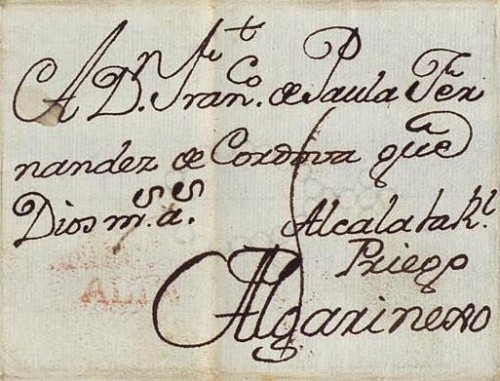 A D.n Fran.co de Paula Fer
nandez de Cordova que
Dios m.s a.s
Alcala la R.l
Priego
Algarinexo